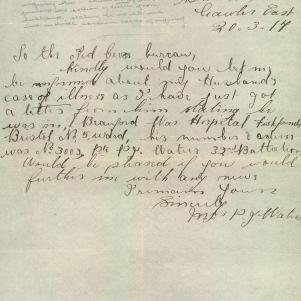 Gawler East
20.3.17
To the Red Cross bureau,
Kindly would you let me
be informed about my Husbands
case of illness as I have just got
a letter from him stating he
was in Beauford War Hospital Fishponds
Bristol N. 5 ward, his number
was No 3003 Pte P.J. Waters 32nd Battalion
Would be if you would
further me with any news
I remain Yours
Sincerely
Mrs P.J. Waters